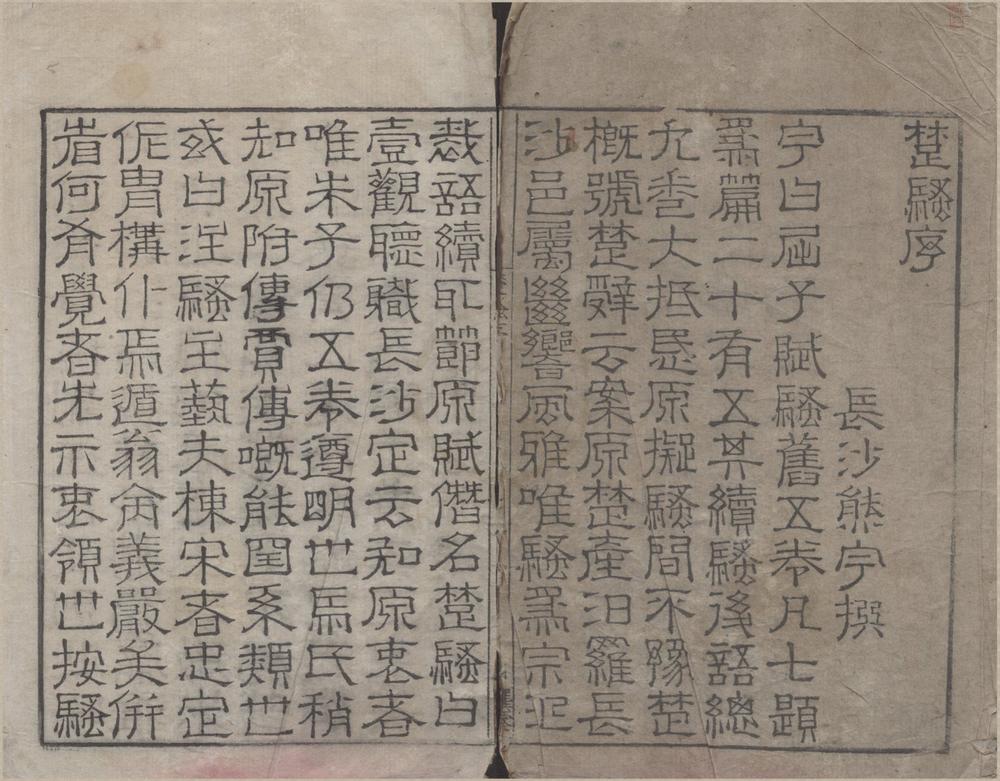 楚騷序
長沙熊宇撰
宇曰屈子賦騷舊五卷凡七題
為篇二十有五其續騷後語總
九卷大抵愍原擬騷間不豫楚
槪號楚辭云案原楚產汨羅長
沙邑屬㡭響風雅唯騷為宗氾
裁語續取節原賦僭名楚騷曰
壹觀聽職長沙定云知原衷者
唯朱子仍五卷遵明世焉氏稍
知原附傳賈傳嘅能罔系類世
或曰注騷主藝夫棟宋者忠定
侂胄構仆焉遁翁侖義嚴矣併
省何肴覺者先示衷領世按騷